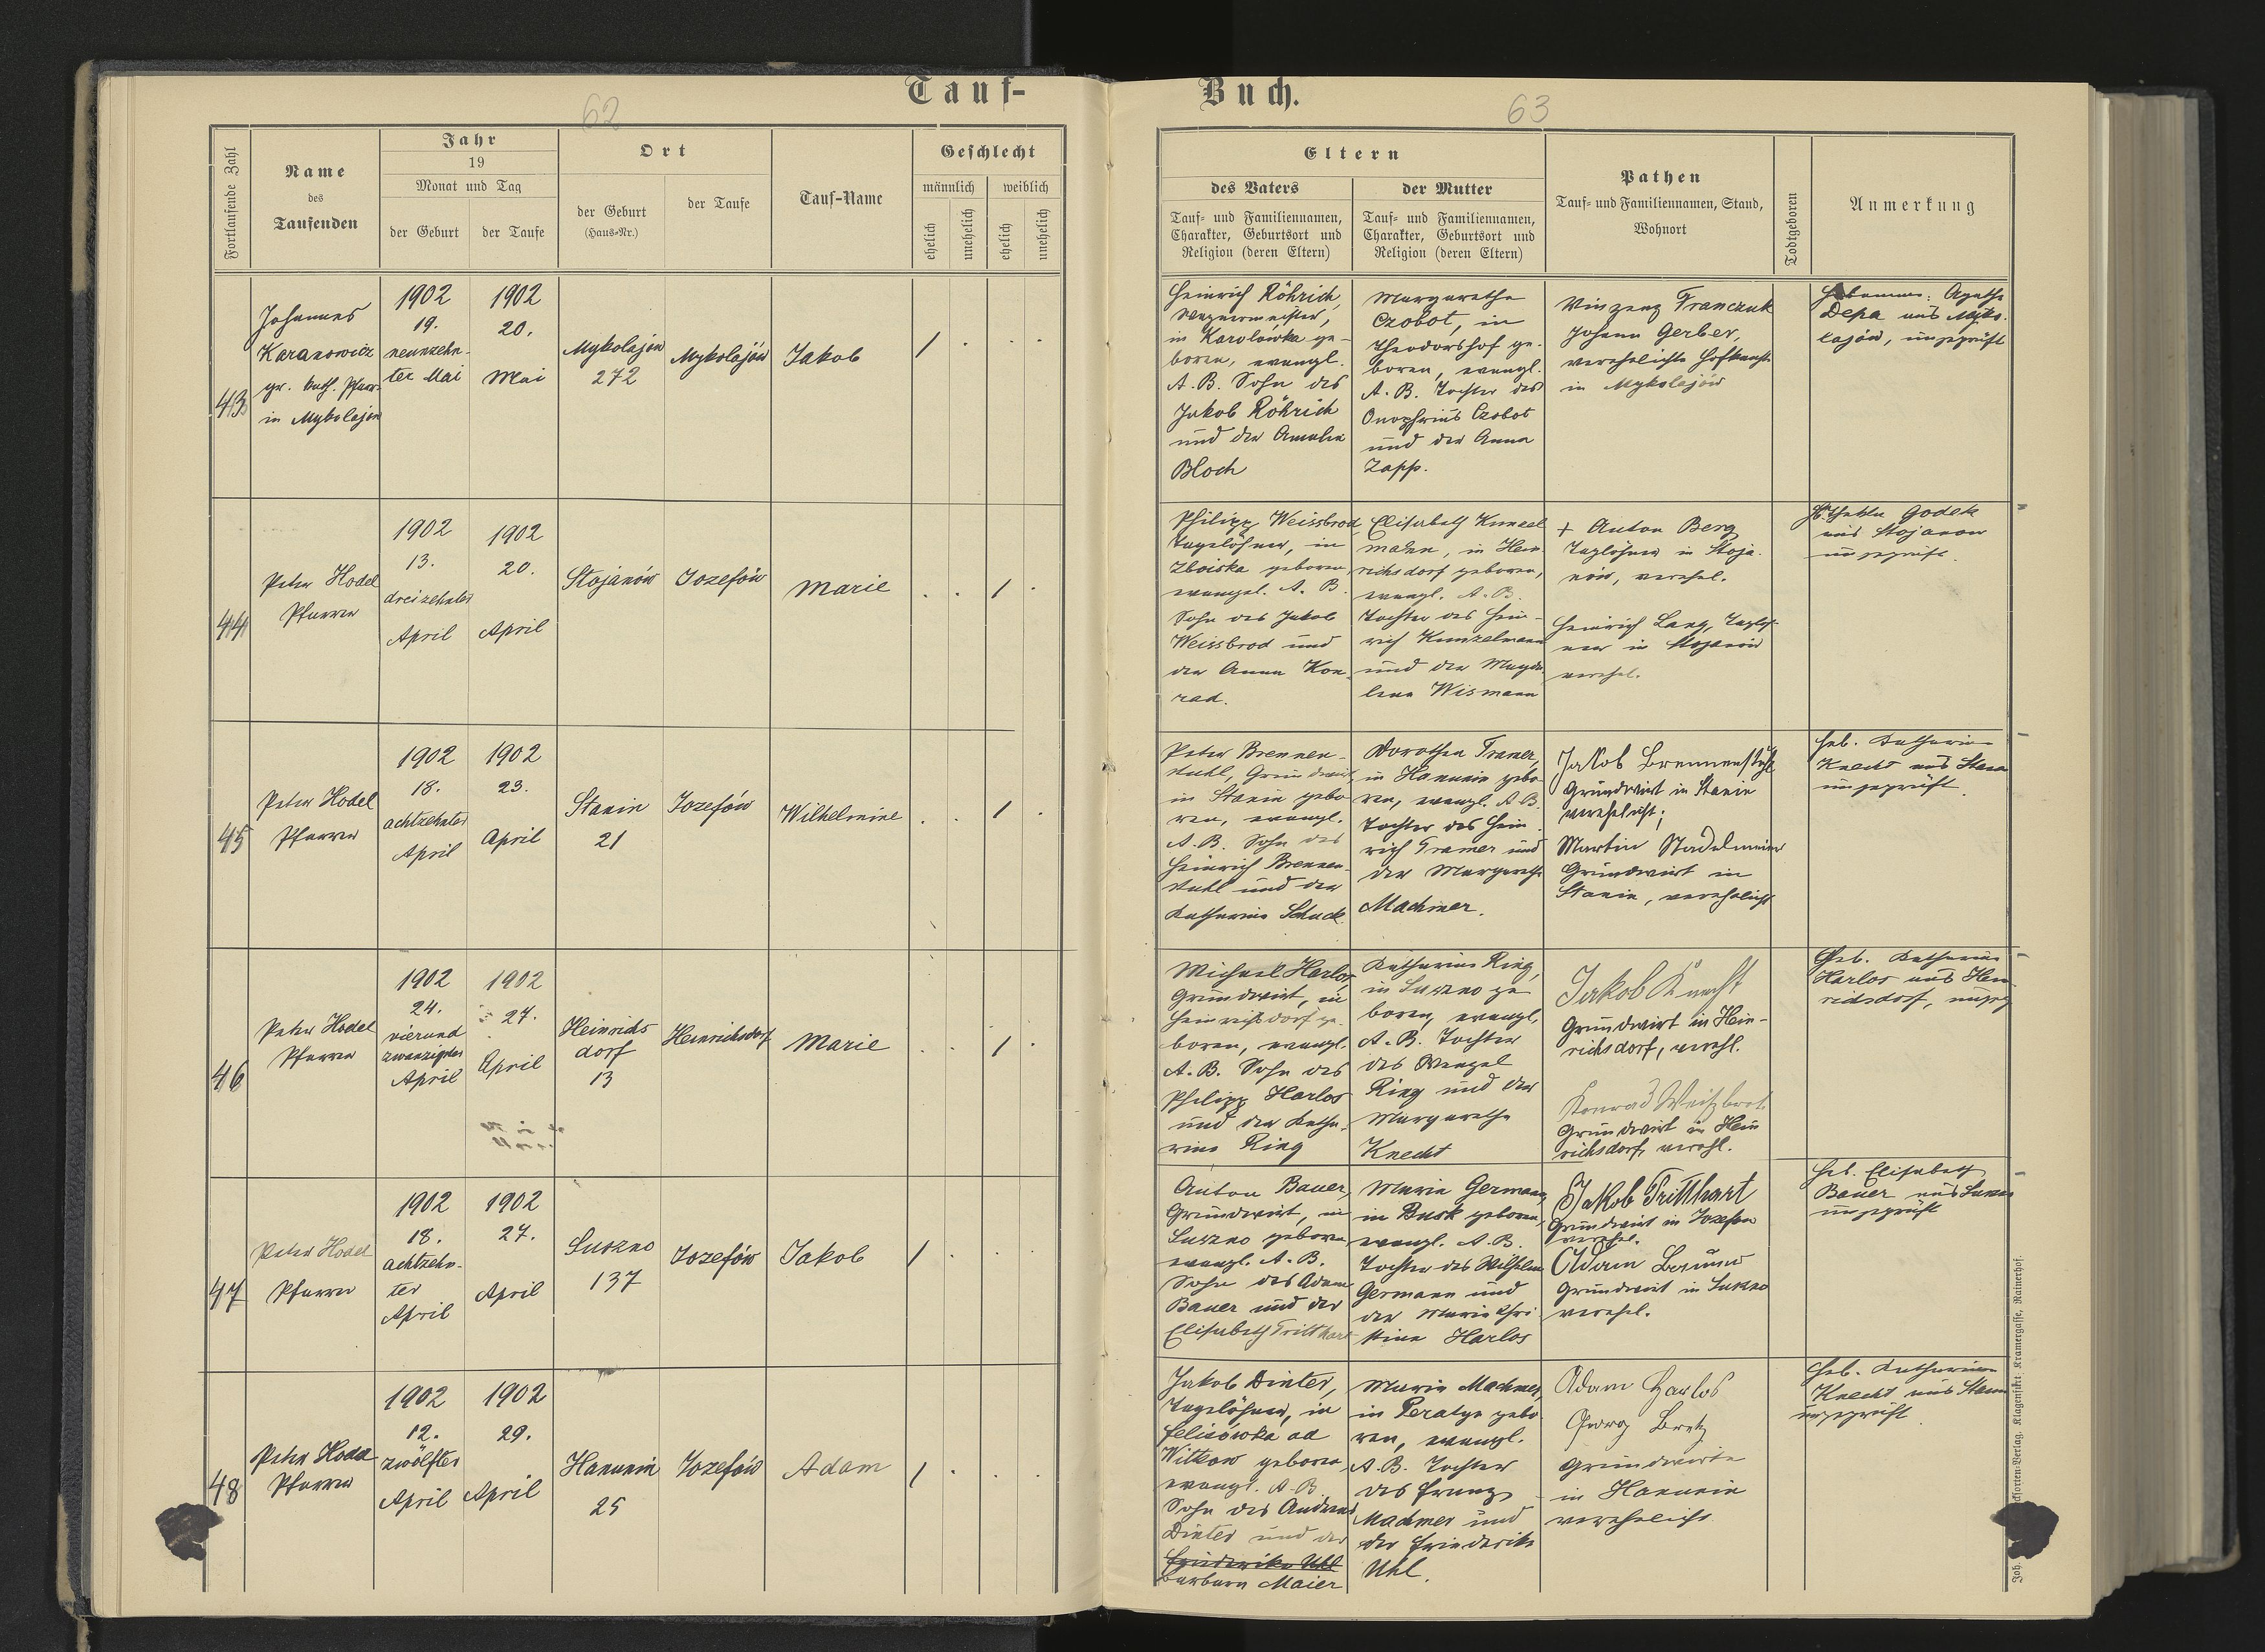 Tauf-
62
Fortlaufende Zahl
Name
des
Taufenden
Jahr
19
Monat und Tag
der Geburt
der Taufe
Ort
der Geburt
(Haus-Nr.)
der Taufe
Tauf-Name
Geschlecht
männlich
weiblich
ehelich
unehelich
ehelich
unehelich
43
Johannes
Karanowicz
gr. kath. Pfarrer
in Mykolajow
1902
19.
neunzehn-
ter Mai
1902
20.
Mai
Mykolajów
272
Mykolajów
Jakob
/ . . .
44
Peter Hodel
Pfarrer
1902
13.
dreizehnter
April
1902
20.
April
Stojanów
Jozefów
Marie
. . / .
45
Peter Hodel
Pfarrer
1902
18.
achtzehnter
April
1902
23.
April
Stanin
21
Jozefów
Wilhelmine
. . / .
46
Peter Hodel
Pfarrer
1902
24.
vierund
zwanzigster
April
1902
27.
April
Heinrichs
dorf
13
Heinrichsdorf
Marie
. . / .
47
Peter Hodel
Pfarrer
1902
18.
achtzehn-
ter
April
1902
27.
April
Suszno
137
Jozefów
Jakob
/ . . .
48
Peter Hodel
Pfarrer
1902
12.
zwölfter
April
1902
29.
April
Hanunin
25
Jozefów
Adam
/ . . .
Buch.
63
Eltern
des Vaters
Tauf- und Familiennamen,
Charakter, Geburtsort und
Religion (deren Eltern)
der Mutter
Tauf- und Familiennamen,
Charakter, Geburtsort und
Religion (deren Eltern)
Pathen
Tauf- und Familiennamen, Stand,
Wohnort
Todtgeboren
Anmerkung
Heinrich Röhrich,
in Karolówka ge-
boren, evangl.
A. B. Sohn des
Jakob Röhrich
und der Amalia
Bloch
Margarethe
Czobot, in
Theodorshof ge-
boren, evangl.
A. B. Tochter des
Onophrius Czobot
und der Anna
Zapp.
Vinzenz Franczuk
Johann Gerber,
verehelichte
in Mykolajów
Hebamme: Agathe
Depa aus Myko-
lajów, ungeprüft
Philipp Weissbrod
Tagelöhner, in
Zboiska geboren,
evangel. A. B.
Sohn des Jakob
Weissbrod und
der Anna Kon-
rad.
Elisabeth Kunzel
mann, in Hein-
richsdorf geboren,
evangl. A. B.
Tochter des Hein-
rich Kunzelmann
und der Magda-
lena Wismann
+ Anton Berg
Taglöhner in Stoja-
nów, verehel.
Heinrich Lang, Taglöh-
ner in Stojanów
verehel.
Godek
aus Stojanow
ungeprüft.
Peter Brennen-
stuhl, Grundwirt,
in Stanin gebo-
ren, evangl.
A. B. Sohn des
Heinrich Brennen-
stuhl und der
Katharina Schuck.
Dorothea Tramer,
in Hanunin gebo-
ren, evangl. A. B.
Tochter des Hein-
rich Tramer und
der Margarethe
Machmer.
Jakob Brennenstuhl
Grundwirt in Stanin
verehelicht;
Martin Stadelmeier
Grundwirt in
Stanin, verehelicht
Heb. Katharina
Knecht aus Stanin
ungeprüft.
Michael Harlos,
Grundwirt, in
Heinrichsdorf ge-
boren, evangl.
A. B. Sohn des
Philipp Harlos
und der Katha-
rina Ring
Katharina Ring,
in Suszno ge-
boren, evangl.
A. B. Tochter
des Wenzel
Ring und der
Margarethe
Knecht
Jakob Knecht
Grundwirt in Hein-
richsdorf, verehl.
Konrad Weißbrot
Grundwirt in Hein
richsdorf, verehl.
Heb. Katharina
Harlos aus Hein-
richsdorf, ungepr
Anton Bauer,
Grundwirt, in
Suszno geboren
evangl. A. B.
Sohn des Adam
Bauer und der
Elisabeth Tritthart
Maria Germann,
in Busk geboren,
evangl. A. B.
Tochter des Wilhelm
Germann und
der Maria Chri-
stine Harlos
Jakob Tritthart
Grundwirt in Jozefow
verehel.
Adam Bauer
Grundwirt in Suszno
verehel.
Heb. Elisabeth
Bauer aus Suszno
ungeprüft
Jakob Dinter,
Tagelöhner, in
Felicówka ad
Witkow geboren,
evangl. A. B.
Sohn des Andreas
Dinter und der
Friederike Uhl
Barbara Maier
Maria Machmer,
in Peratyn gebo-
ren, evangl.
A. B. Tochter
des Franz
Machmer und
der Friederike
Uhl.
Adam Harlos
Georg Bretz
Grundwirte
in Hanunin
verehelicht.
Heb. Katharina
Knecht aus Stanin
ungeprüft.
Verlag, Klagenfurt, Kramergasse, Rainerhof.